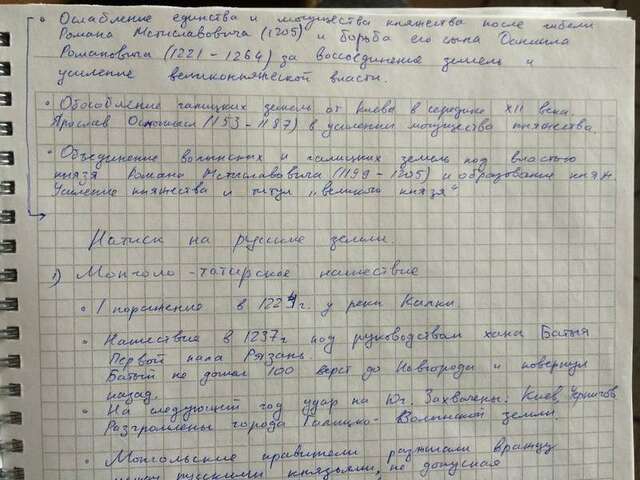 • Ослабление единства и могущества княжества после гибели
Романа Мстиславовича (1205) и борьба его сына Даниила
Романовича (1221 - 1264) за воссоединение земель и
усиление великокняжеской власти.
• Обособление галицких земель от Киева в середине XII века.
Ярослав Осмомысл (1153 - 1187) в усилении могущества княжества.
• Объединение волынских и галицких земель под властью
князя Романа Мстиславовича (1199 - 1205) и образование княж
Усиление княжества и титул „великого князя"
Натиск на русские земли.
1) Монголо-татарское нашествие
• I поражение в 1224 г. у реки Калки.
• Нашествие в 1237 г под руководством хана Батыя
Первой пала Рязань.
Батый не дошел 100 верст до Новгорода и повернул
назад.
• На следующий год удар на Юг. Захвачены: Киев, Чернигов
Разгромлены города Галицко-Волынской земли.
• Монгольские правители разжигали вражду
между русскими князьями, не допуская